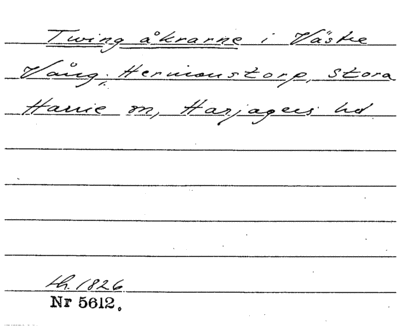 Twing åkrarne i Västra
Vång, Hermanstorp, Stora
Harrie sn, Harjagers hd
th. 1826
Nr 5612.